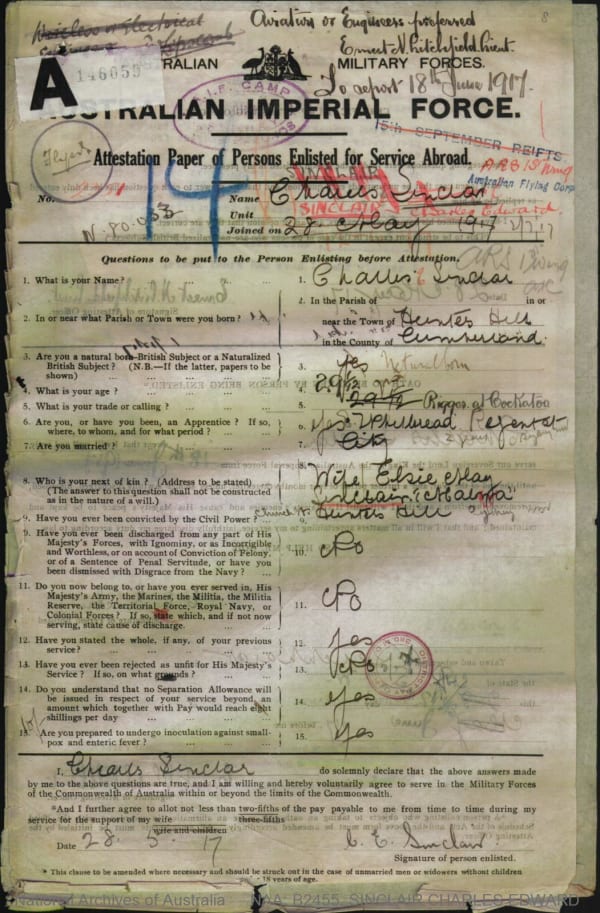 Wireless or Electrical
Aviation or Engineers preferred
8
146053
A
AUSTRALIAN MILITARY FORCES.
To report 18th June 1917.
A.I.F. CAMP
AUSTRALIAN IMPERIAL FORCE.
15th SEPTEMBER REIFTS
Attestation Paper of Persons Enlisted for Service Abroad.
Australian Flying Corps
14
SINCLAIR
No. Name Charles Sinclair
SINCLAIR Charles Edward.
Unit
Joined on 28 May 1917
Questions to be put to the Person Enlisting before Attestation.
1. What is your Name? 1. Charles E Sinclair
2. In or near what Parish or Town were you born? 2. In the Parish of in or
near the Town of Hunters Hill
in the County of Cumberland.
3. Are you a natural born British Subject or a Naturalized
British Subject? (N.B.—If the latter, papers to be
shown) 3. Yes Natural born
4. What is your age? 4. 29
5. What is your trade or calling? 5. Rigger at Cockatoo
6. Are you, or have you been, an Apprentice? If so,
where, to whom, and for what period? 6. Yes
7. Are you married? 7. City
8. Who is your next of kin? (Address to be stated)
(The answer to this question shall not be constructed
as in the nature of a will.) 8. Wife Elsie May
Sinclair
Hunters Hill Sydney
9. Have you ever been convicted by the Civil Power? 9.
9. Have you ever been discharged from any part of His
Majesty's Forces, with Ignominy, or as Incorrigible
and Worthless, or on account of Conviction of Felony,
or of a Sentence of Penal Servitude, or have you
been dismissed with Disgrace from the Navy? 10. No
11. Do you now belong to, or have you ever served in, His
Majesty's Army, the Marines, the Militia, the Militia
Reserve, the Territorial Force, Royal Navy, or
Colonial Forces? If so, state which, and if not now
serving, state cause of discharge. 11. No
12. Have you stated the whole, if any, of your previous
service? 12. Yes
13. Have you ever been rejected as unfit for His Majesty's
Service? If so, on what grounds? 13. No
14. Do you understand that no Separation Allowance will
be issued in respect of your service beyond an
amount which together with Pay would reach eight
shillings per day 14. Yes
15. Are you prepared to undergo inoculation against small-
pox and enteric fever? 15. Yes
I, Charles Sinclair do solemnly declare that the above answers made
by me to the above questions are true, and I am willing and hereby voluntarily agree to serve in the Military Forces
of the Commonwealth of Australia within or beyond the limits of the Commonwealth.
*And I further agree to allot not less than two-fifths of the pay payable to me from time to time during my
three-fifths
service for the support of my wife
wife and children
Date 28. 5. 17 C. E. Sinclair
Signature of person enlisted.
* This clause to be amended where necessary and should be struck out in the case of unmarried men or widowers without children
18 years of age.
National Archives of Australia NAA: B2455, SINCLAIR CHARLES EDWARD